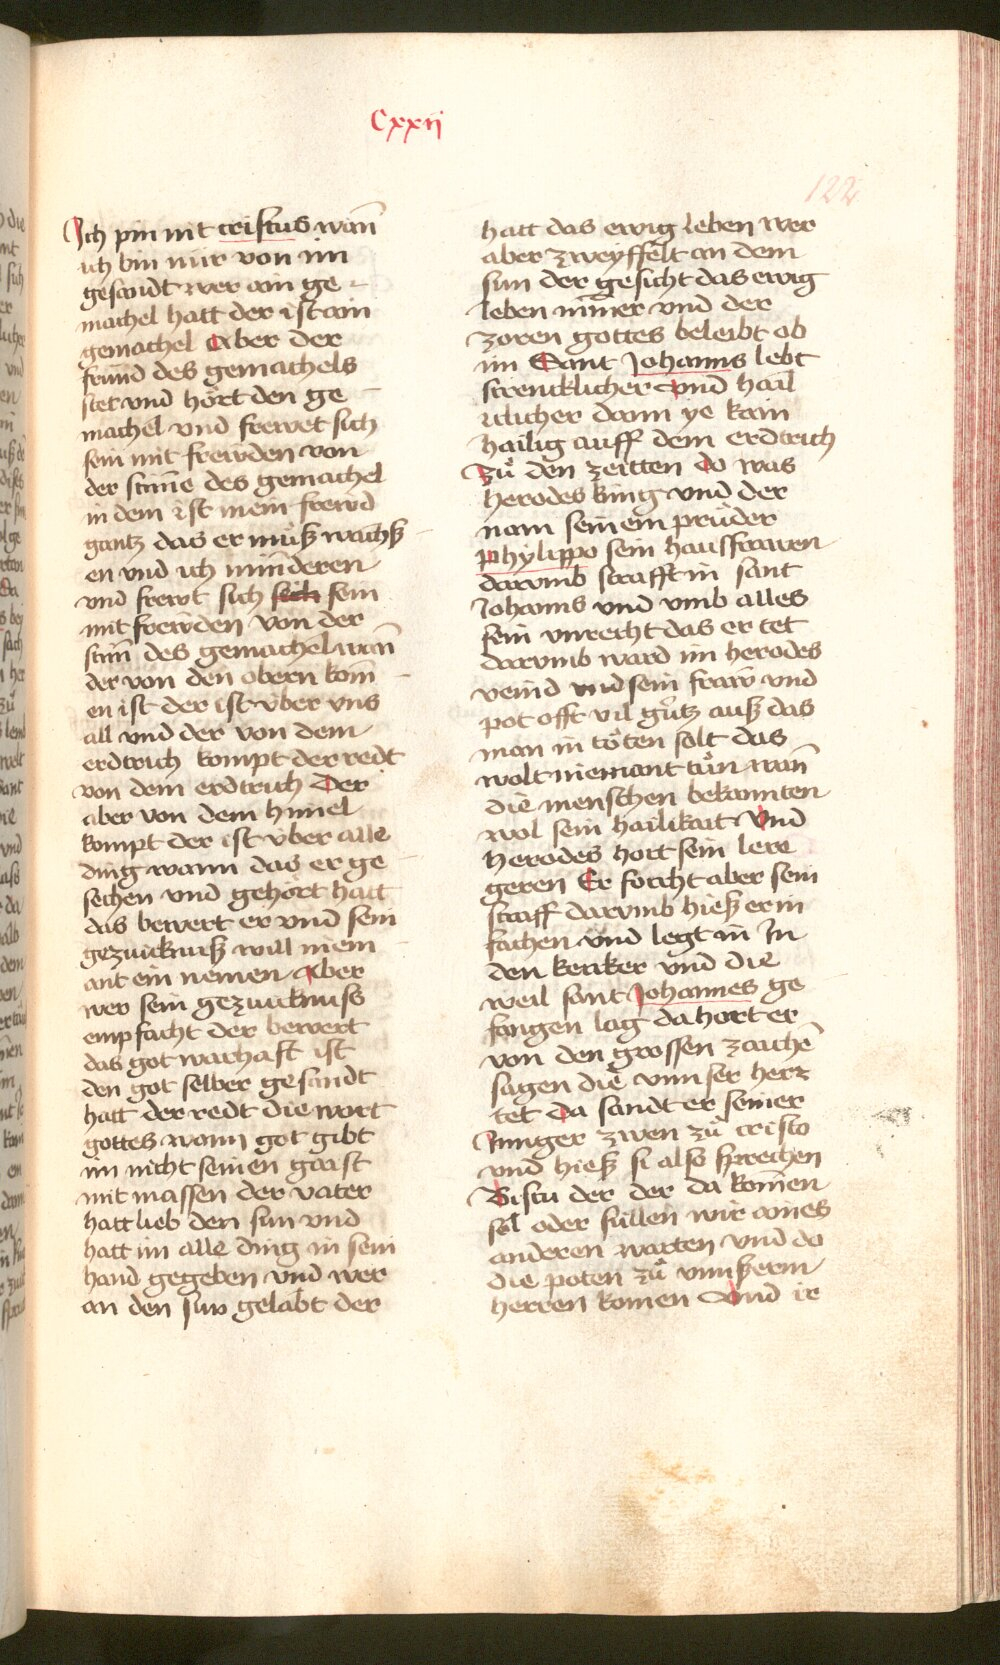 Cxxij
122
Ich pin nit cristus wan̄
ich bin nur von im
gesandt wer ain ge-
machel hatt der ist ain
gemachel Aber der
frund des gemachels
stet vnd hört den ge
machel vnd frewet sich
sein mit frewden von
der stim̄e des gemachel
in dem ist mein frewd
gantz das er muß wachß
en vnd ich minderen
vnd frewt sich sich sein
mit frewden von der
stim̄ des gemachel wan̄
der von den obern kom̄
en ist der ist vber vns
all vnd der von dem
erdtrich kompt der redt
von dem erdtrich Der
aber von dem himel
kompt der ist vber alle
ding wann das er ge
sechen vnd gehört hatt
das bewert er vnd sein
gezuicknuß will niem
ant ein nemen Aber
wer sein gezuicknuss
empfacht der bewert
das got warhaft ist
den got selber gesandt
hatt der redt die wort
gottes wann got gibt
im nicht seinen gaist
mit massen der vater
hatt lieb den sun vnd
hatt im alle ding in sein
hand gegeben vnd wer
an den sun gelabt der
hatt das ewig leben wer
aber zweyffelt an dem
sun der gesicht das ewig
leben nim̄er vnd der
zoren gottes beleibt ob
im Sant Johanns lebt
strencklicher vnd hail
iclicher dann ye kain
hailig auff dem erdtrich
Zů den zeitten do was
herodes king vnd der
nam seinem průder
Phylippo sein hausfrawen
darumb strafft in sant
Johanns vnd vmb alles
sein vnrecht das er tet
darumb ward im herodes
veind vnd sein fraw vnd
pot offt vil gůtz auß das
man in töten solt das
wolt niemant tůn wan̄
die menschen bekannten
wol sein hailikait Vnd
herodes hort sein lere
geren Er forcht aber sein
straff darumb hieß er in
fachen vnd legt in In
den kerker vnd die
weil sant Johannes ge
fangen lag da hort er
von den grossen zaichē
sagen die vnnser herz
tet Da sandt er seiner
Junger zwen zů cristo
vnd hieß si also sprechen
Bistu der der da komen
sol oder sullen wir aines
anderen warten vnd do
die poten zů vnnserm
herren komen Vnd ir